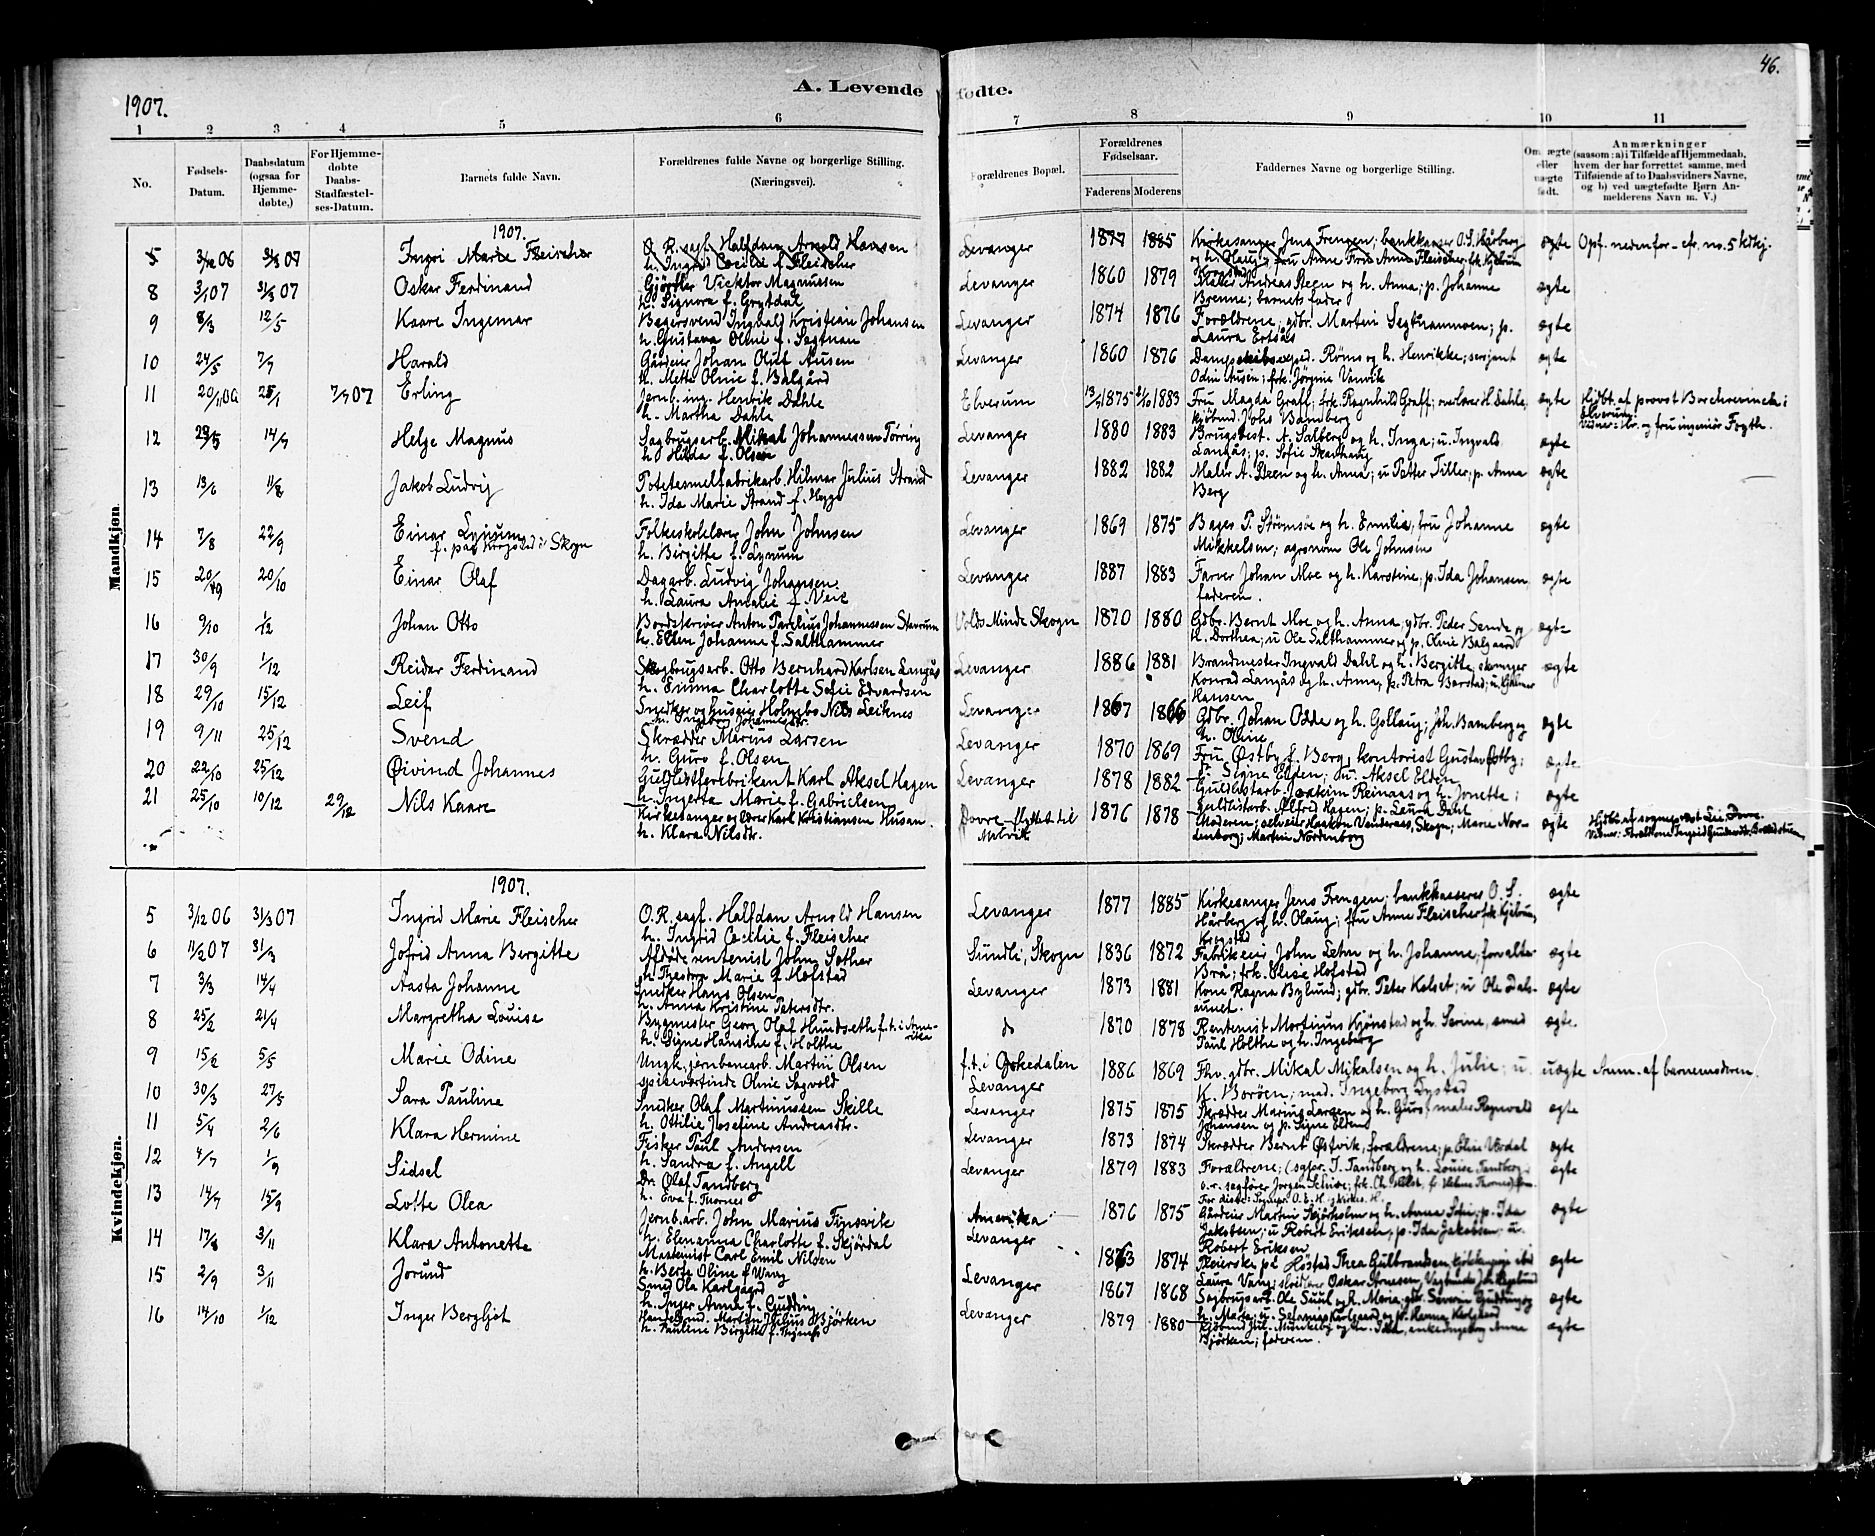 46.
1907.
A. Levende fødte.
1 2 3 4 5 6 7 8 9 10 11
No.
Fødsels-Datum.
Daabsdatum (ogsaa for Hjemme-døbte,)
For Hjemme-døbte Daabs-Stadfæstel-ses-Datum.
Barnets fulde Navn.
Forældrenes fulde Navne og borgerlige Stilling. (Næringsvei).
Forældrenes Bopæl.
Forældrenes Fødselsaar.
Faderens Moderens
Faddernes Navne og borgerlige Stilling.
Om ægte eller uægte født.
Anmærkninger (saasom: a) i Tilfælde af Hjemmedaab, hvem der har forrettet samme, med Tilføiende af to Daabsvidners Navne, og b) ved uægtefødte Børn Anmelderens Navn m. V.)
Mandkjøn.
1907.
5 3/12 06 31/3 07 Ingri Marie Fleischer O. R. sagf. Halfdan Arnold Hansen Levanger 1877 1885 Kirkesanger Jens Frengen; bankkasser O. S. Hårberg ægte Opf. nedenfor - cfr. no. 5 kdkj.
h. Ingrid Cecilie f. Fleischer og h. Olaug; fru Anne Fleischer
8 3/1 07 31/3 07 Oskar Ferdinand Gjørtler Vicktor Magnussen Levanger 1860 1879 Maler Andreas Steen og h. Anna; p. Johanne ægte
h. Signora f. Grytdal Brenne; barnets fader
9 8/3 12/5 Kaare Ingemar Bagersvend Ingvald Kristian Johansen Levanger 1874 1876 Forældrene; gdbr. Martin Segthanmoen; p. ægte
h. Gustava Oline f. Segtnan Laura Ertsås
10 24/5 7/7 Harald Gårdeier Johan Oluf Ausen Levanger 1860 1876 Dampskibsexped. Røms og h. Henrikke; serjant ægte
h. Mette Oline f. Balgård Odin Ausen; frk. Jørgine Vinvik
11 29/11 06 25/1 7/7 07 Erling Jernb. ing. Henrik Dahle Elverum 1875 1883 Fru Magda Graff; frk. Ragnhild Graff; overlærer H. Dahle, ægte Hjdbt. af provst Borchrevinck i Elverum.
h. Martha Dahle kjøbmd Johs Bamberg Vidner: Hr. og fru ingeniør Fogth.
12 29/5 14/7 Helge Magnus Sagbrugsarb. Mikal Johannessen Tørring Levanger 1880 1883 Brugsbest. A. Salberg og h. Inga; u. Ingvald ægte
h. Hilda f. Olsen Langås; p. Sofie Skanhaug
13 13/6 11/8 Jakob Ludvig Potetesmelfabrikarb. Hilmar Julius Strand Levanger 1882 1882 Maler A. Steen og h. Anna; u. Petter Tiller; p. Anna ægte
h. Ida Marie Strand f. Hegge Berg
14 7/8 22/9 Einar Lynum Folkeskolelærer John Johnsen Levanger 1869 1875 Bager P. Strømsøe og h. Emilia; fru Johanne ægte
f. paa Ringstad i Skogn h. Birgitte f. Lynum Mikkelsen; agronom Ole Johnsen
15 20/9 20/10 Einar Olaf Dagarb. Ludvig Johansen Levanger 1887 1883 Farver Johan Moe og h. Karstine; p. Ida Johansen ægte
h. Laura Amalie f. Veie faderen.
16 9/10 1/12 Johan Otto Bordskriver Anton Parelius Johannessen Stavrum Volds Minde Skogn 1870 1880 Gdbr. Bernt Moe og h. Anna; gdbr. Peder Sende og ægte
h. Ellen Johanne f. Salthammer h. Dorthea; u. Ole Salthammer og p. Oline Balgaard
17 30/9 1/12 Reidar Ferdinand Sagbrugsarb. Otto Bernhard Karlsen Langås Levanger 1886 1881 Brandmester Ingvald Dahl og h. Bergitte; ægte
h. Emma Charlotte Sofie Edvardsen Konrad Langås og h. Anna, p. Petra Barstad; u. Hjalmar Hansen
18 29/10 15/12 Leif Snedker og huseier Holmbo Nils Leiknes Levanger 1867 1866 Gdbr. Johan Odde og h. Gollaug; Joh. Bamberg og ægte
h. Ingeborg Johannesdtr. h. Oline
19 9/11 25/12 Svend Skrædder Marius Larsen Levanger 1870 1869 Fru Østby f. Berg; kontorist Gustav Østby; ægte
h. Guro f. Olsen f. Signe Elden; u. Aksel Elden
20 22/10 25/12 Øivind Johannes Guldlistfabrikant Karl Aksel Hagen Levanger 1878 1882 Guldlistarb. Joakim Reinaas og h. Jonette; ægte
h. Ingerta Marie f. Gabrielsen Guldlistarb. Alfrid Hagen; p. Laura Dahl
21 25/10 10/12 29/12 Nils Kaare Kirkesanger og lærer Karl Kristiansen Husan. Dovre - flyttet til Malvik 1876 1878 Moderen; selveier Haakon Vanderaas, Skogn; Marie Nor- ægte Hjdbt. af sogneprest Lie, Dovre.
h. Klara Nilsdtr. denborg; Martin Nordenborg Vidner: Forældrene
Kvindekjøn.
1907.
5 3/12 06 31/3 07 Ingrid Marie Fleischer O. R. sagf. Halfdan Arnold Hansen Levanger 1877 1885 Kirkesanger Jens Frengen; bankkasseres O. S. ægte
h. Ingrid Cecilie f. Fleischer Hårberg og h. Olaug; fru Anne Fleischer
6 11/2 07 31/3 Jofrid Anna Bergitte Afdøde rentenist John Sother Sundli, Skogn 1836 1872 Fabrikeier John Lehn og h. Johanne; forvalter ægte
h. Theodora Marie f. Hofstad Brå; frk. Elise Hofstad
7 3/3 14/4 Aasta Johanne Snedker Hans Olsen Levanger 1873 1881 Kone Ragna Bylund; gdbr. Peter Kolset; u. Ole Dals- ægte
h. Anna Kristine Petersdtr. aunet.
8 25/2 21/4 Margretha Louise Bygmester Georg Olaf Hundseth f. t. i Ame-rika do 1870 1878 Rentenist Mortinus Kjønstad og h. Serine, smed ægte.
h. Signe Hansine f. Holthe Paul Holthe og h. Ingeborg
9 15/2 5/5 Marie Odine Ungk. jernbanearb. Martin Olsen f. t. i Levanger 1886 1869 Fhv. gdbr. Mikal Mikalsen og h. Julie; u. uægte Anm. af barnemoderen.
spiseværtinde Oline Sagvold K. Borøen; mad. Ingeborg Lystad
10 30/3 27/5 Sara Pauline Snedker Olaf Martinussen Skille Levanger 1875 1875 Skrædder Marius Larsen og h. Guro; maler Ragnvald ægte
h. Ottilie Josefine Andreasdtr. Johansen og p. Signe Elden
11 5/4 2/6 Klara Hermine Fisker Paul Andersen Levanger 1873 1874 Skrædder Bernt Østvik; forældrene; p. Oline Verdal ægte
h. Sandra f. Angell
12 4/7 1/9 Sidsel Dr. Olaf Tandberg Levanger 1879 1883 Forældrene; (sagfør. J. Tandberg og h. Louise Tandberg ægte
h. Eva f. Thornes
13 14/7 15/9 Lotte Olea Jernb. arb. John Marius Finsvik Amerika Levanger 1876 1875 Gårdeier Martin Skjørholm og h. Anna Sofie; p. Ida ægte
h. Elenanna Charlotte f. Skjørdal Jakobsen; u. Robert Eriksen, p. Ida Jakobsen, u. Robert Eriksen
14 17/8 3/11 Klara Antonette Maskinist Carl Emil Nilsen 1863 1874 Meierske på Høstad Thea Gulbrandsen ægte
h. Berte Oline f. Vang Laura Vang; Oskar Arnesen
15 2/9 3/11 Jorund Smed Ola Karlgård Levanger 1867 1868 Sagbrugsarb. Ole Suul og h. Maria; gbr. Severin Gudding og ægte
h. Inger Anna f. Gudding h. Marie; u. Selanus Karlgaard og p. Hanna Karlgaard
16 14/10 1/12 Inger Bergljot Handelsmd. Martin Julius Bjørken Levanger 1879 1880 Kjøbmd Hil. Munkeby og h. Ida, enke Ingeborg Anne ægte
h. Pauline Birgitte Bjørken; faderen.